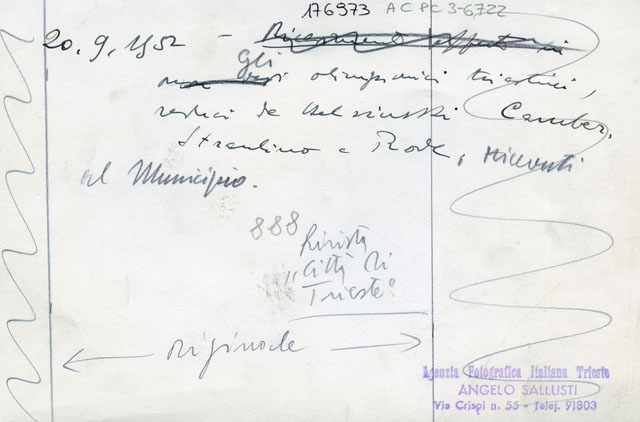 176973 ACPC 3-6722
20.9.1952 - Ricevimento offerto in
Gli
olimpionici triestini,
reduci da Helsinski Camber,
Straulino e Rode, ricevuti
al Municipio.
888
Rivista
"Città di
Trieste"
originale
Agenzia Fotografica Italiana Trieste
ANGELO SALLUSTI
Via Crispi n. 55 - Telef. 91803